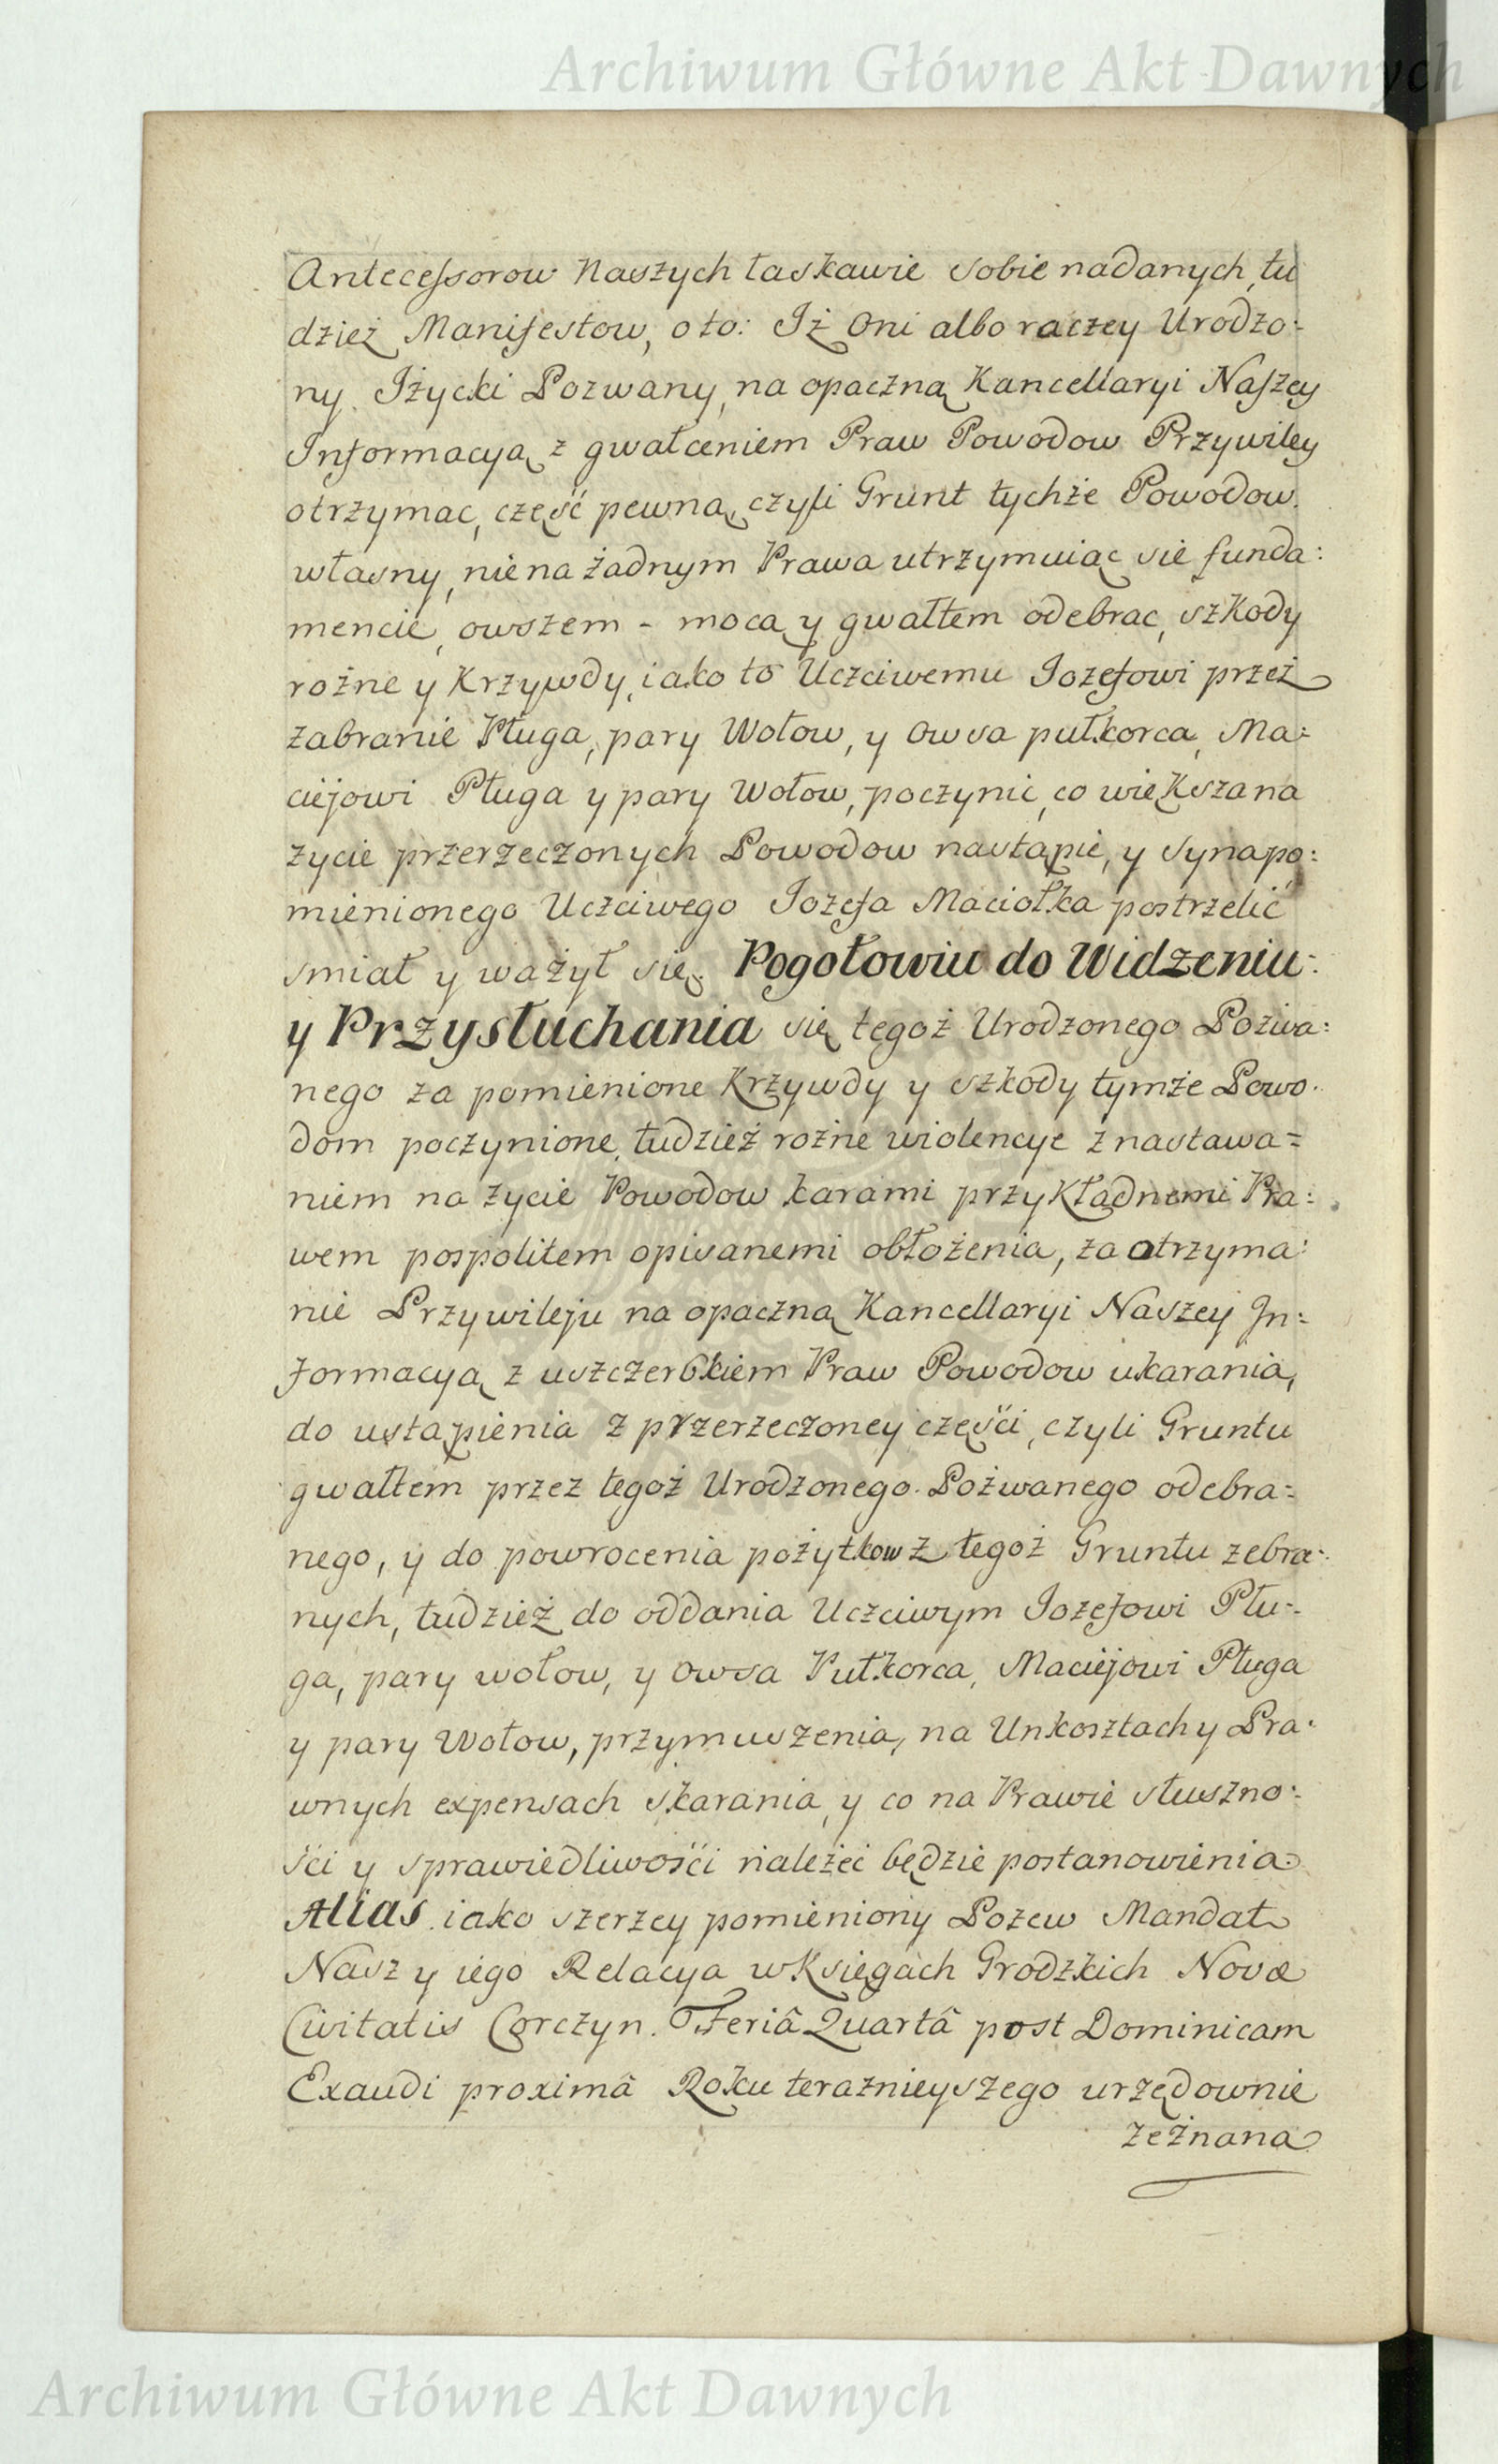 Archiwum Główne Akt Dawnych
Antecessorow Naszych łaskawie sobie nadanych, tu
dzież Manifestow, o to: Iż Oni albo raczey Urodzo:
ny Iżycki Pozwany, na opaczną Kancellaryi Naszey
Informacyą z gwałceniem Praw Powodow Przywiley
otrzymac, część pewną, czyli Grunt tychże Powodow.
własny, nie na żadnym Prawa utrzymuiąc sie funda:
mencie, owszem - mocą y gwałtem odebrac, szkody
rożne y Krzywdy, iako to Uczciwemu Iozefowi przez
zabranie Pługa, pary Wołow, y Owsa pułkorca, Ma:
ciejowi Pługa y pary Wołow, poczynic, co większa na
życie przerzeczonych Powodow nastąpić, y syna po:
mienionego Uczciwego Iozefa Maciołka postrzelić
smiał y ważył się. Pogotowiu do Widzeniu:
y Przysłuchania się tegoż Urodzonego Pozwa:
nego za pomienione Krzywdy y szkody tymże Powo:
dom poczynione, tudzież rożne wiolencye z nastawa=
niem na życie Powodow karami przykładnemi Pra:
wem pospolitem opisanemi obłożenia, za otrzyma:
nie Przywileju na opaczną Kancellaryi Naszey In:
formacyą z uszczerbkiem Praw Powodow ukarania,
do ustąpienia z przerzeczoney części, czyli Gruntu
gwałtem przez tegoż Urodzonego Pozwanego odebra=
nego, y do powrocenia pożytkow z tegoż Gruntu zebra:
nych, tudzież do oddania Uczciwym Iozefowi Płu:
ga, pary wołow, y Owsa Pułkorca, Maciejowi Pługa
y pary Wołow, przymuszenia, na Unkosztach y Pra:
wnych expensach skarania, y co na Prawie słuszno:
ści y sprawiedliwości należeć będzie postanowienia.
Alias iako szerzey pomieniony Pozew Mandat
Nasz y iego Relacya w Księgach Grodzkich Novæ
Civitatis Corczyn. Feriâ Quartâ post Dominicam
Exaudi proximâ Roku teraznieyszego urzędownie
zeznana
Archiwum Główne Akt Dawnych